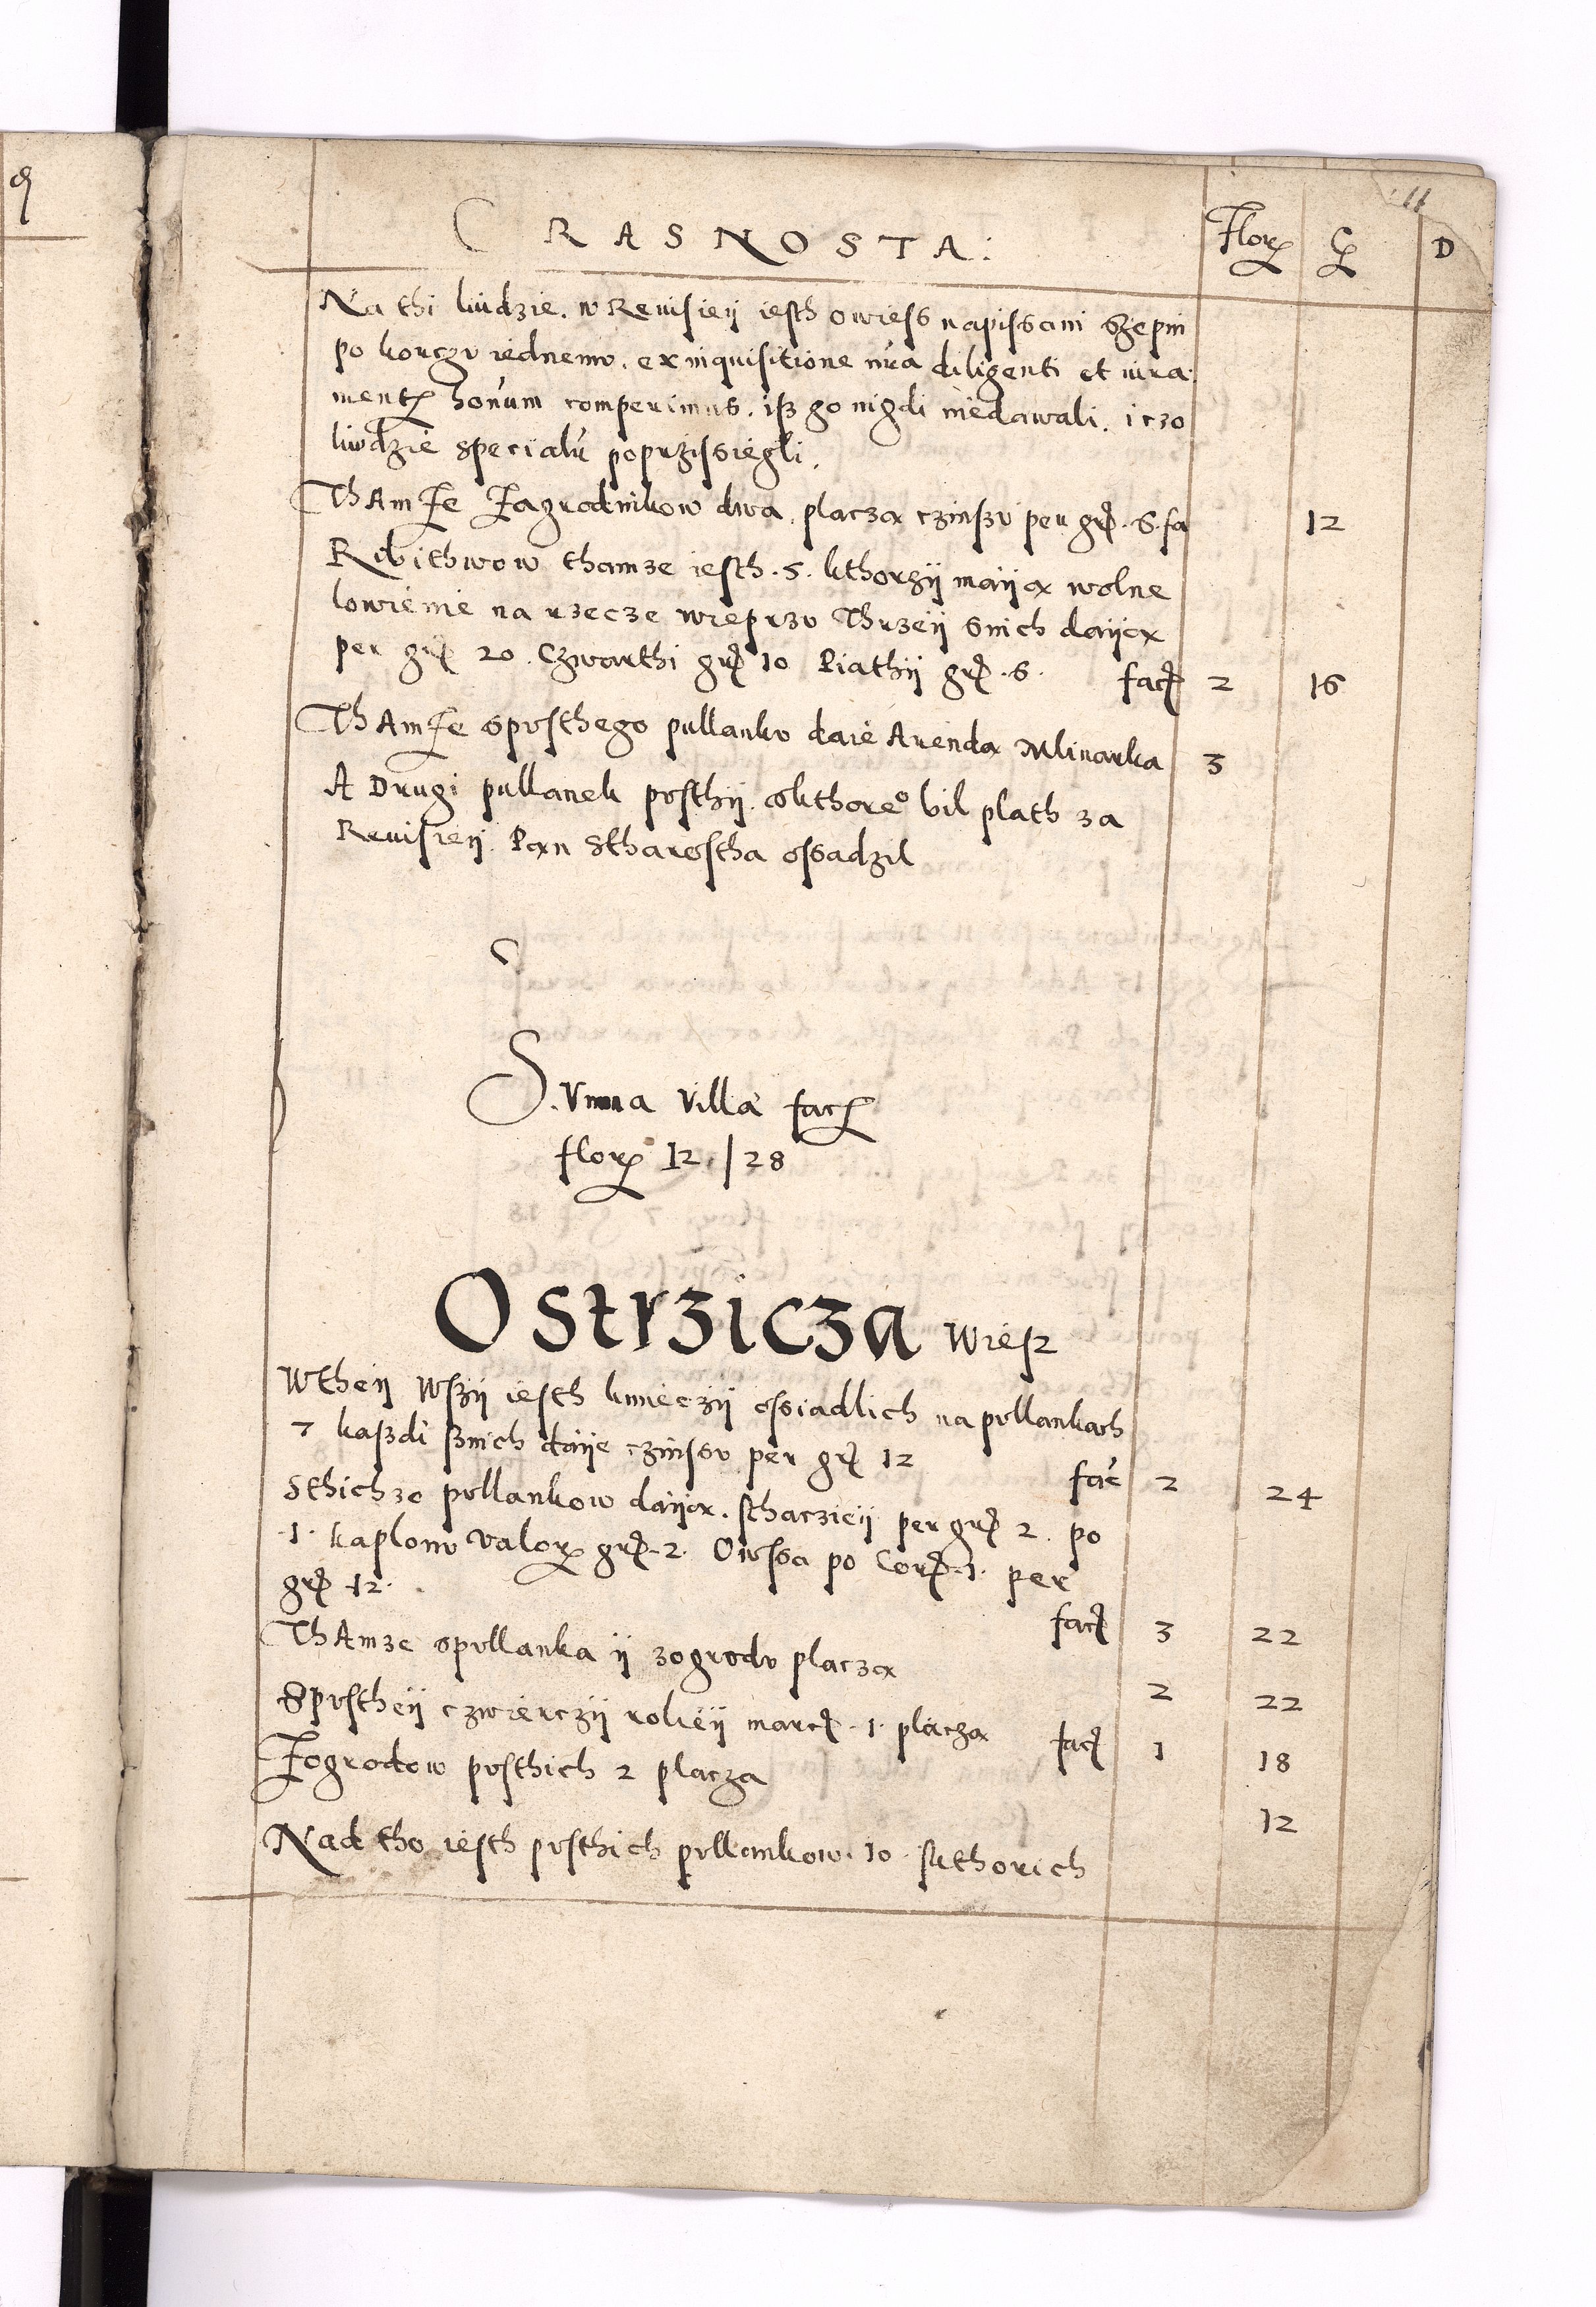 11
CRASNOSTA:
Flor G D
Na thi liudzie. w Reuisieÿ iesth owiess napissani szepin
po korczv iednemv. ex inquisitione nra diligenti et iura
ment honum comperimus. isz go nigdi niedawali. i czo
liwdzie speciali poprzissiegli.
ThAmże Zagrodnikow dwa placza czinszv per gr. 6. fa 12
Ribithwow thamze iesth. 5. kthorzÿ maÿa wolne
lowienie na rzecze wieprzv Thrzeÿ snich daÿa
per gr 20. Czwarthi gr 10 Piathÿ gr. 6. fac 2 16
ThAmże spvsthego pullankv daie Arenda Mlinarka 3
A Drugi pullanek pvsthÿ. okthoreo bil plath za
Reuisieÿ. Pan Stharostha ossadzil
S.Vmma Villa fac
flor 12 / 28
Ostrzicza wiesz
Wtheÿ Wszÿ iesth kmieczÿ ossiadlich na pvllankach
7 kaszdi sznich daÿe czinssv per gr 12 fac 2 24
Sthichze pvllankow daÿa. sthaczieÿ per gr 2. po
.1. kaplonv valor gr. 2. Owssa po Cor. 1. per
gr 12. fac 3 22
ThAmze spvllanka ÿ zogrodv placza 2 22
Spvstheÿ czwierczÿ rolieÿ marc. 1. placza fac 1 18
Zogrodow pvsthich 2 placza 12
Nad tho iesth pvsthich pvllankow. 10. skthorich